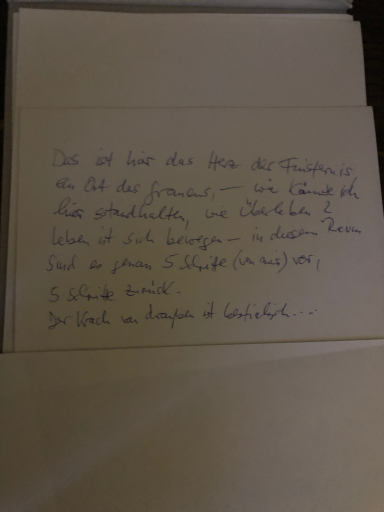 Das ist hier das Herz der Finsternis,
ein Ort des Grauens, — wie könnte ich
hier standhalten, wie überleben?
Leben ist sich bewegen — in diesem Raum
sind es genau 5 Schritte (von aus) vor,
5 Schritte zurück.
Der Krach von draußen ist bestialisch...